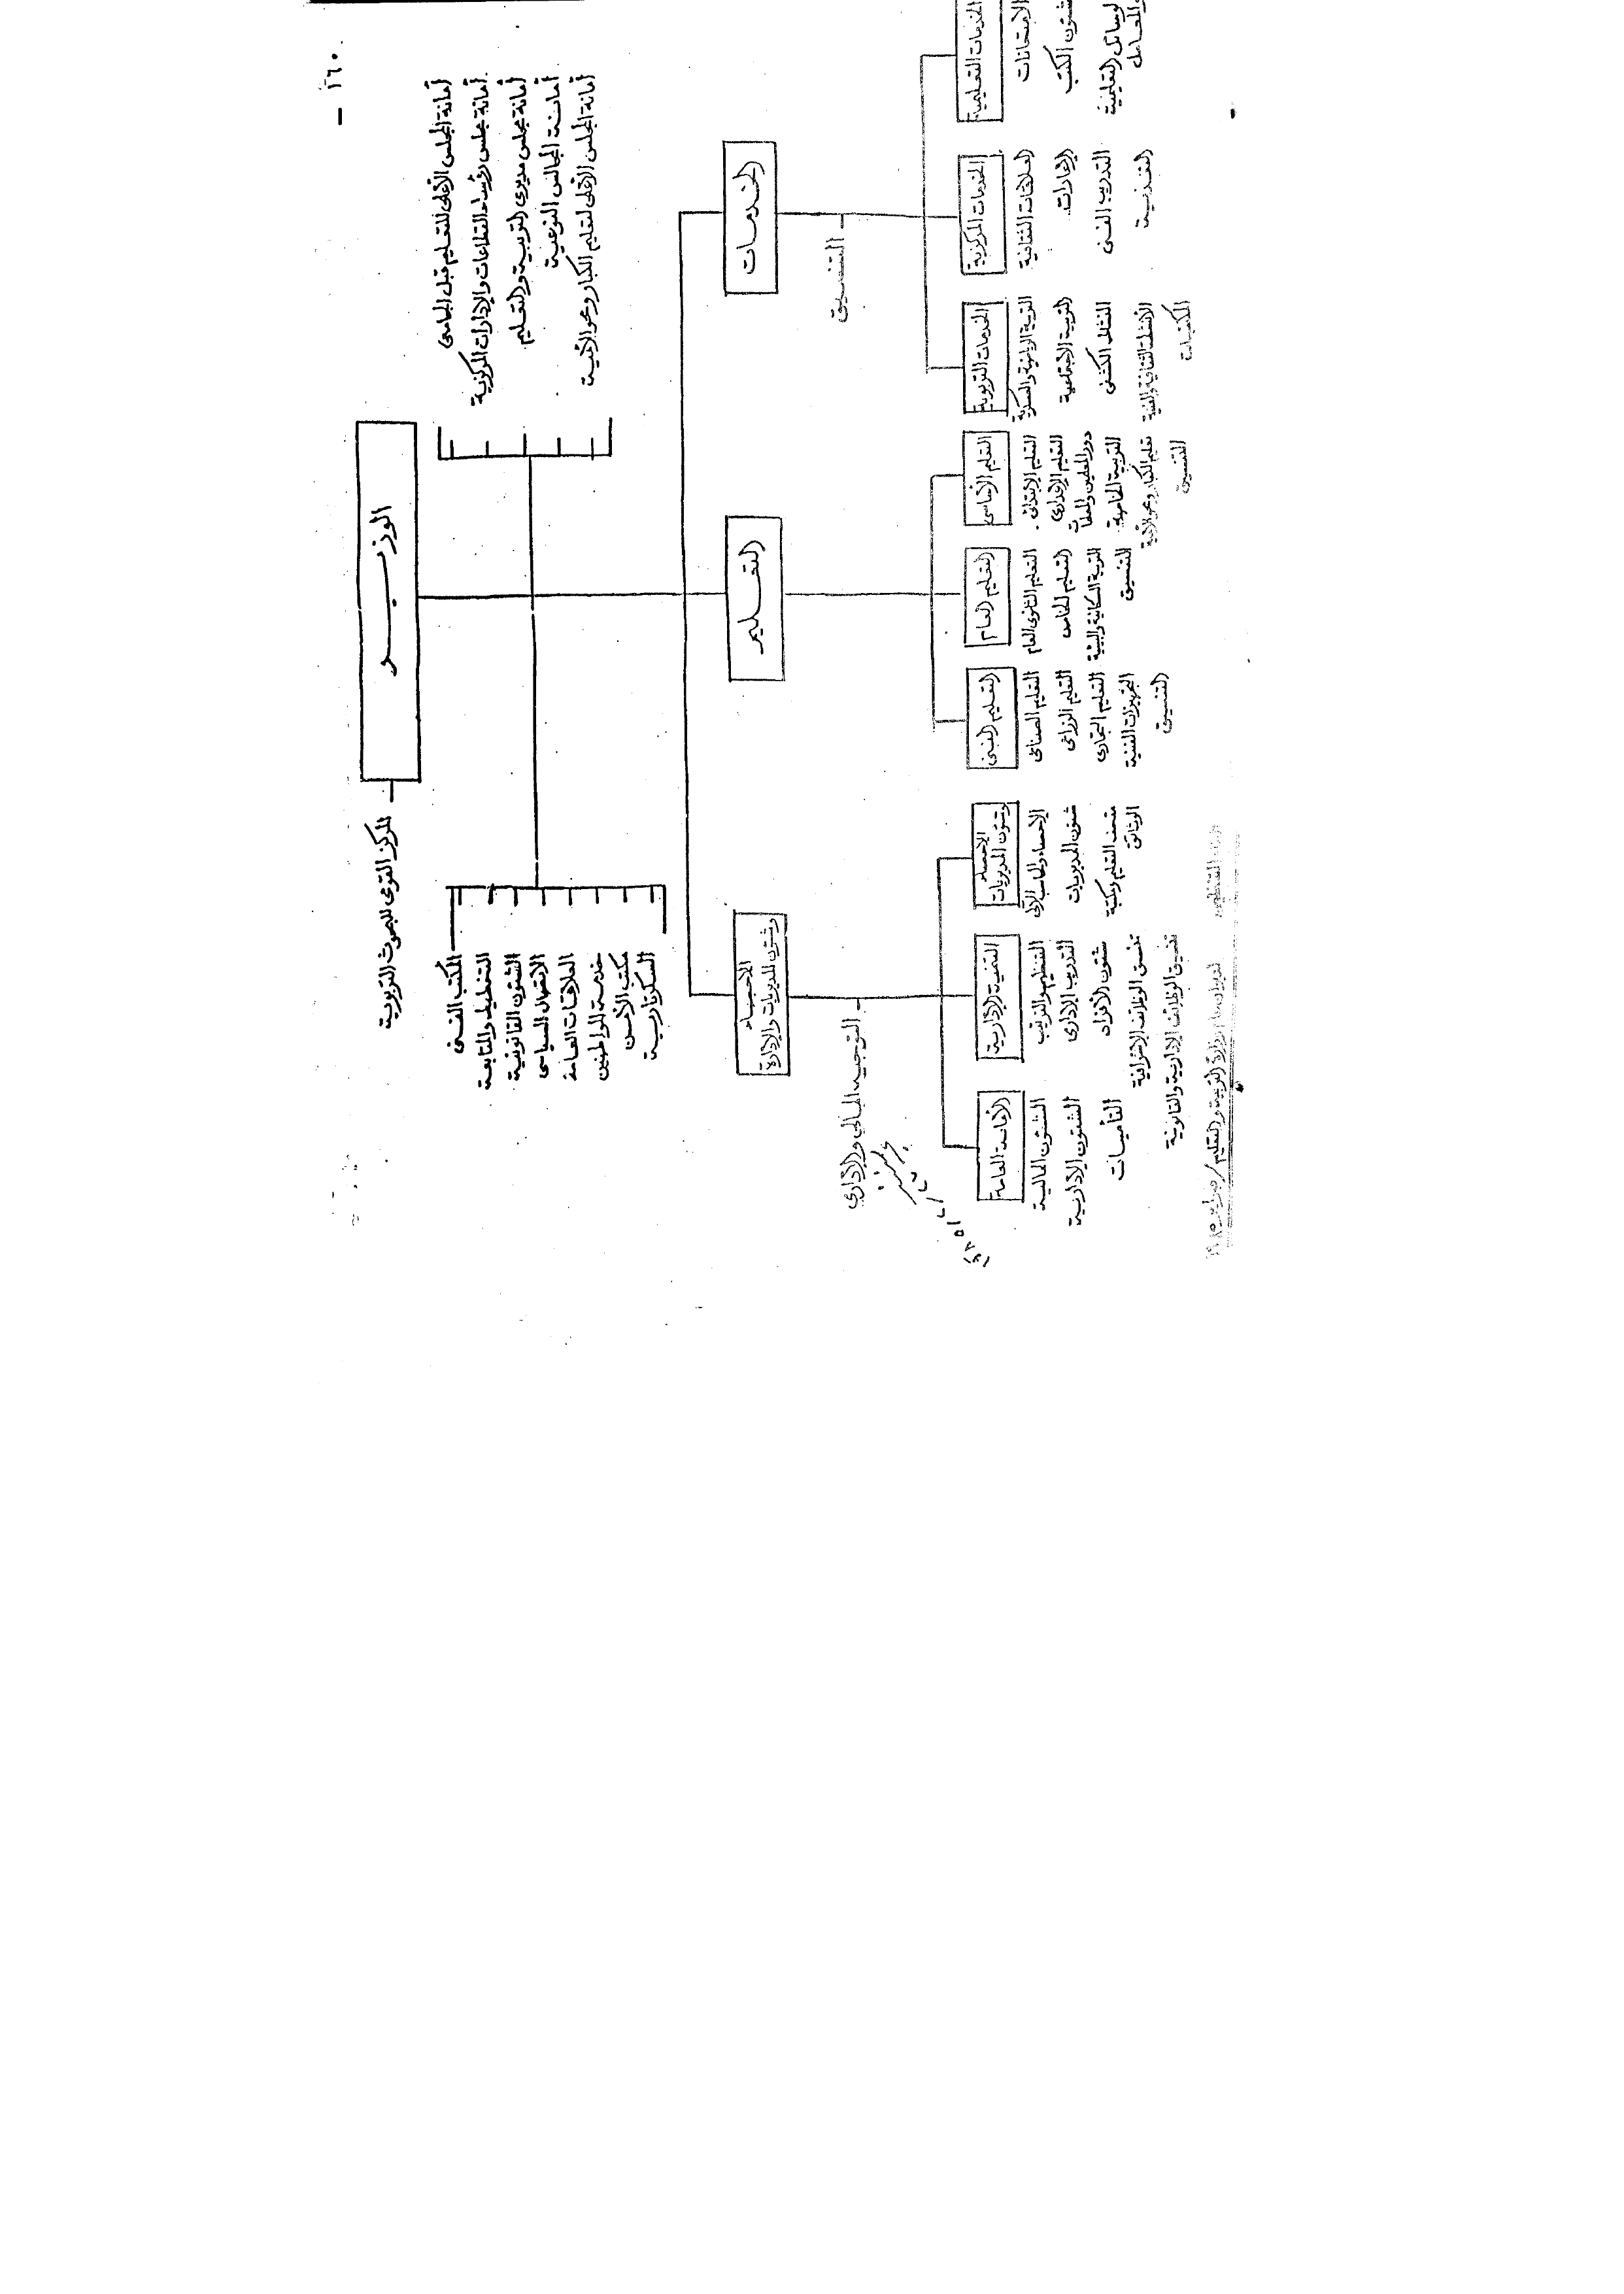 ١٦٠ -
الوزيـــر
المركز القومى للبحوث التربوية
أمانة المجلس الأعلى للتعليم قبل الجامعى
أمانة مجلس رؤساء القطاعات والإدارات المركزية
أمانة مجلس مديرى التربية والتعليم
أمانة المجالس النوعية
أمانة المجلس الأعلى لتعليم الكبار ومحو الأمية
المكتب الفنى
التخطيط والمتابعة
الشئون القانونية
الاتصال السياسى
العلاقات العامة
خدمة المواطنين
مكتب الأمن
السكرتارية
الخدمات
التنسيق
التعليم
الاحصاء
وشئون المديريات والإدارة
التوجيه المالي والإداري
الخدمات التعليمية
الامتحانات
شئون الكتب
الوسائل التعليمية
والمعامل
الخدمات المركزية
العلاقات الثقافية
الإعارات
التدريب الفنى
التغذية
الخدمات التربوية
التربية الرياضية والعسكرية
التربية الاجتماعية
النشاط الكشفى
الأنشطة الثقافية والفنية
المكتبات
التعليم الأساسى
التعليم الابتدائى
التعليم الإعدادى
دور المعلمين والمعلمات
التربية الخاصة
تعليم الكبار ومحو الأمية
التنسيق
التعليم العام
التعليم الثانوى العام
التعليم الخاص
التربية السكانية والبيئية
التنسيق
التعليم الفنى
التعليم الصناعى
التعليم الزراعى
التعليم التجارى
التجهيزات الفنية
التنسيق
الاحصاء
وشئون المديريات
الاحصاء والحاسب الآلى
شئون المديريات
متحف التعليم ومكتبة
الوثائق
التنمية الإدارية
التنظيم والترتيب
التدريب الإدارى
شئون الأفراد
تنسيق الوظائف الإشرافية
تنسيق الوظائف الإدارية والقانونية
الأمانة العامة
الشئون المالية
الشئون الإدارية
التأمينات
لديوان عام وزارة التربية والتعليم / فبراير ١٩٨٥